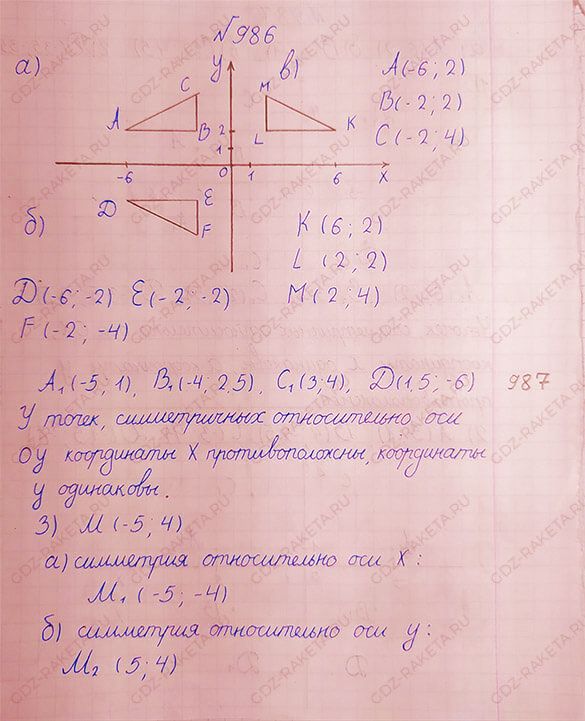 №986
а) у в) A(-6; 2)
C M B(-2; 2)
A B 2 L K C(-2; 4)
1
-6 0 1 6 x
D E
б) F K(6; 2)
L (2; 2)
D(-6; -2) E(-2; -2) M(2; 4)
F(-2; -4)
A₁(-5; 1), B₁(-4; 2,5), C₁(3; 4), D(1,5; -6) 987
У точек, симметричных относительно оси
Оу координаты X противоположны, координаты
у одинаковы.
3) M(-5; 4)
а) симметрия относительно оси X:
M₁(-5; -4)
б) симметрия относительно оси у:
M₂ (5; 4)
GDZ-RAKETA.RU